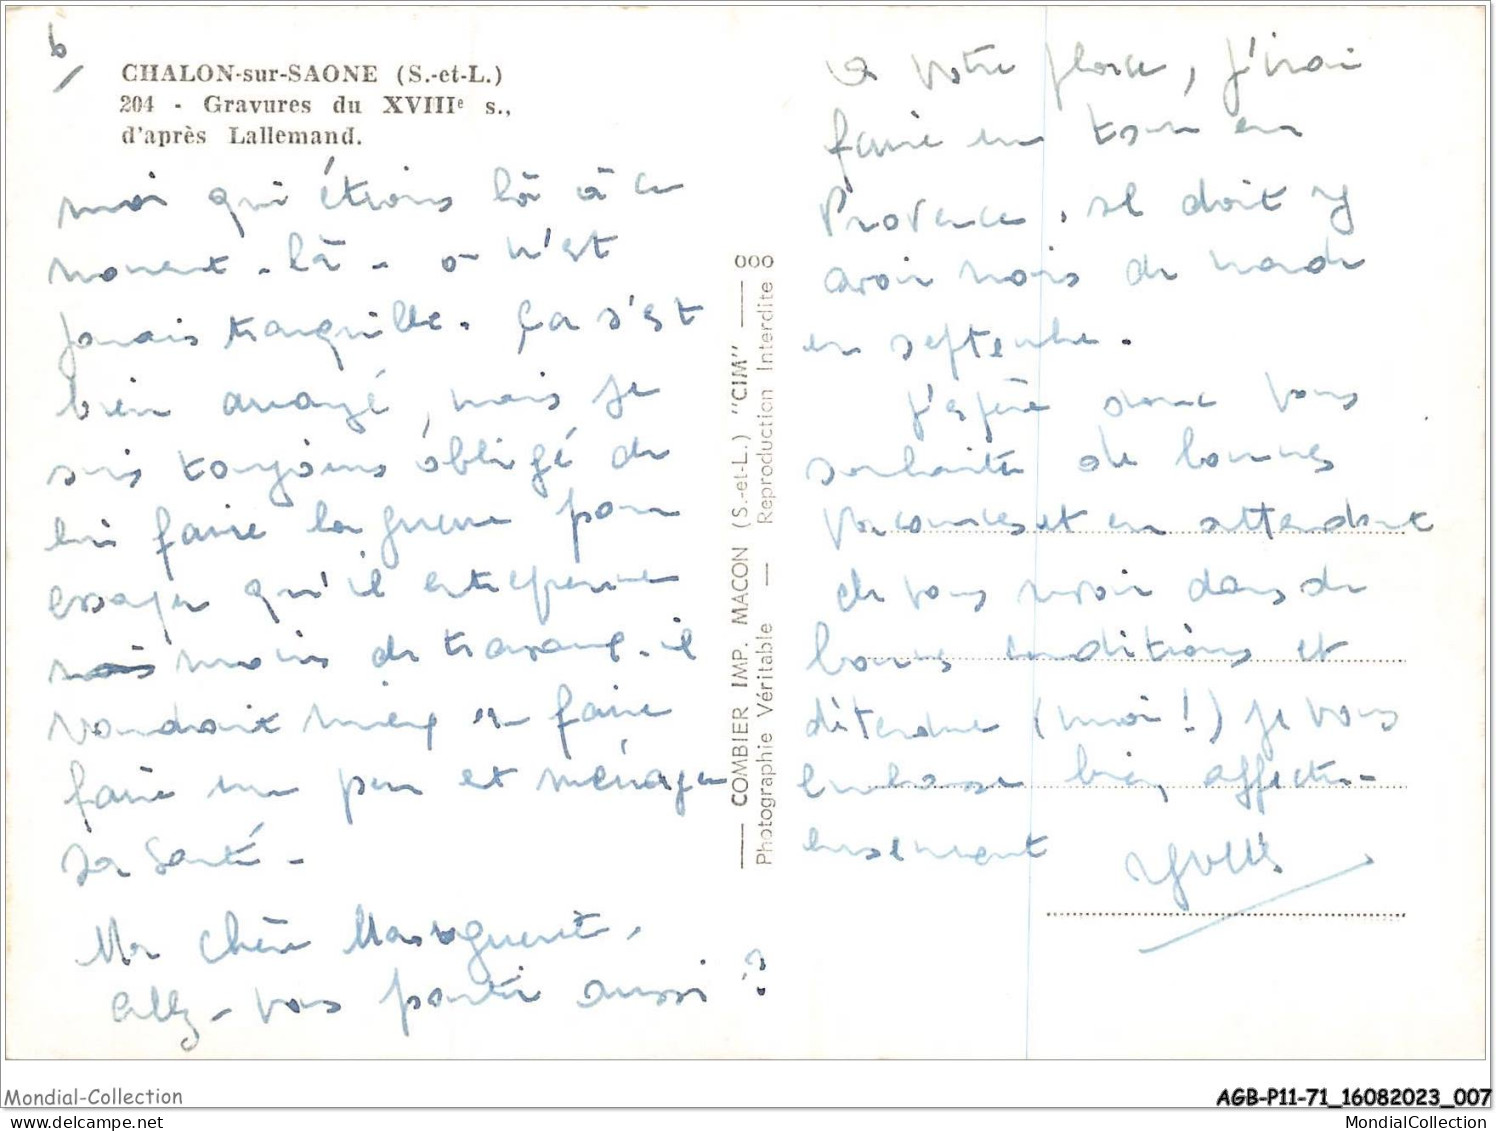 6/
CHALON-sur-SAONE (S.-et-L.)
204 - Gravures du XVIIIe s.,
d'après Lallemand.
moi qui étions là à ce
moment-là - on n'est
jamais tranquille. Ça s'est
bien arrangé, mais je
suis toujours obligé de
lui faire la guerre pour
essayer qu'il entreprenne
moins de travaux. il
voudrait mieux en faire
faire un peu et ménager
sa santé -
Ma chère Marguerite,
Allez-vous partir aussi ?
COMBIER IMP. MACON (S.-et-L.) "CIM"
Photographie Véritable — Reproduction Interdite
A votre place, j'irai
faire un tour en
Provence. il doit y
avoir moins de monde
en septembre.
J'espère donc vous
souhaite de bonnes
vacances et en attendant
de vous revoir dans de
bonnes conditions et
détendue (moi !) je vous
embrasse bien affectu-
eusement
Yves
Mondial-Collection
AGB-P11-71_16082023_007
MondialCollection